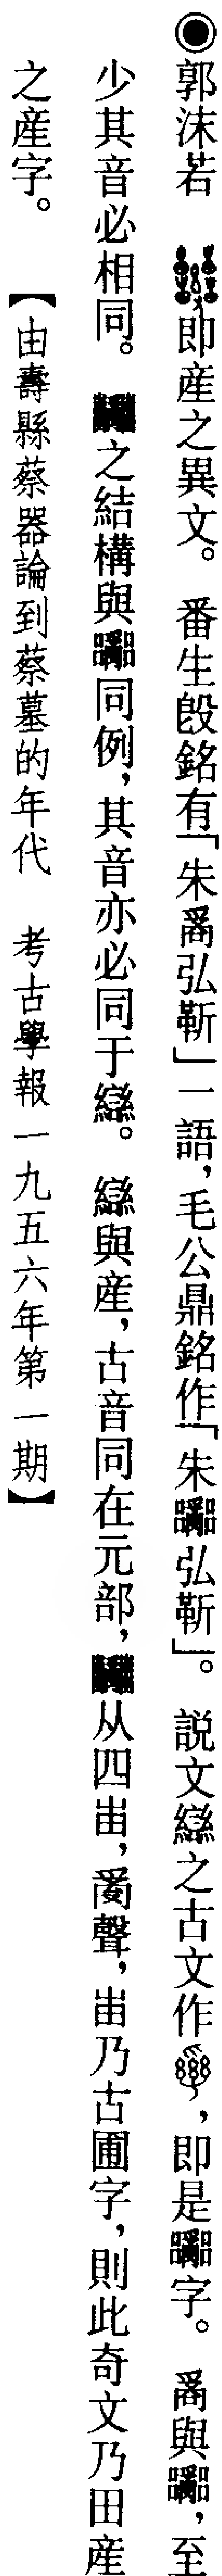 ◉郭沫若　即產之異文。番生𣪘銘有「朱𤔔弘靳」一語，毛公鼎銘作「朱𤕌弘靳」。說文䜌之古文作，即是𤕌字。𤔔與𤕌，至
少其音必相同。之結構與𤕌同例，其音亦必同于䜌。䜌與產，古音同在元部，从四甾，𤔔聲，甾乃古圃字，則此奇文乃田產
之產字。【由壽縣蔡器論到蔡墓的年代　考古學報一九五六年第一期】